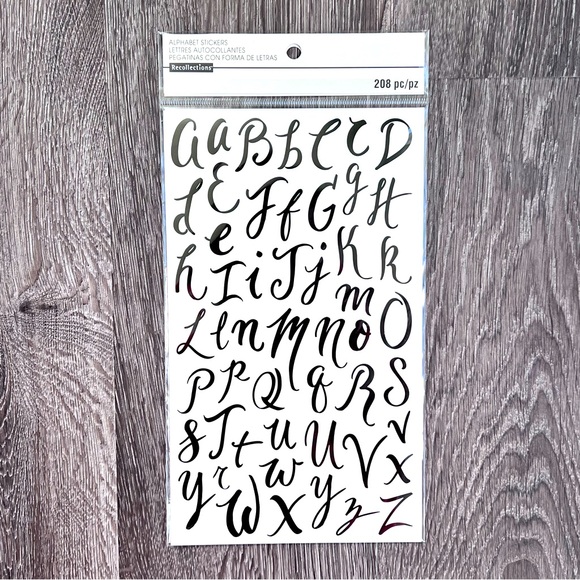 ALPHABET STICKERS
LETTRES AUTOCOLLANTES
PEGATINAS CON FORMA DE LETRAS
Recollections
208 pc/pz
a a B b C c D
d E F f G g H
h e I i J j K k
L l n M m n o O
P P Q q R S
s T t u U V v
y r w W X y z Z x